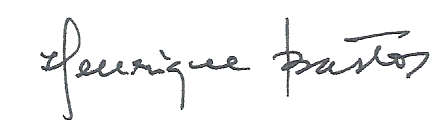 Henrique Bastos